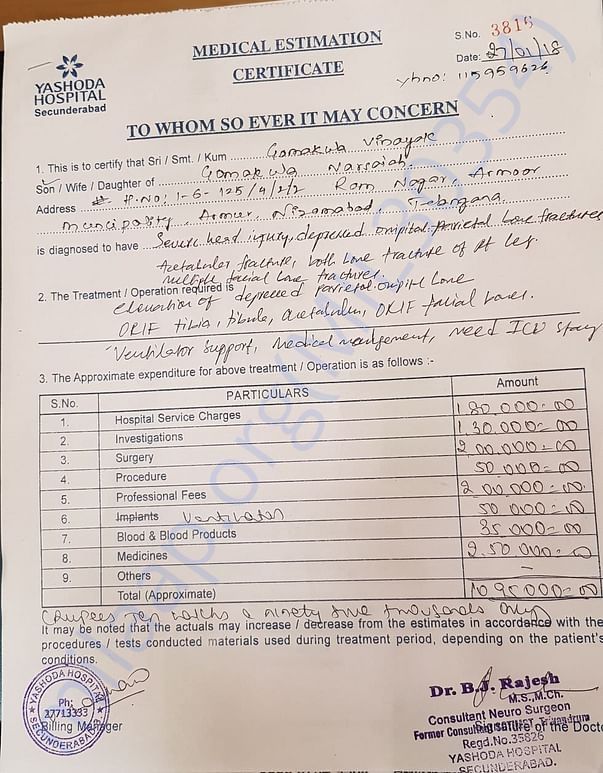 YASHODA
HOSPITAL
Secunderabad
MEDICAL ESTIMATION
CERTIFICATE
S.No. 3816
Date: 27/01/18
yhno: 115959626
TO WHOM SO EVER IT MAY CONCERN
1. This is to certify that Sri / Smt. / Kum Gomakula Vinayak
Son / Wife / Daughter of Gomakula Narsaiah
Address # H.No: 1-6-125/4/2/2 Ram Nagar, Armoor
Muncipality, Armur, Nizamabad, Telangana.
is diagnosed to have Severe head injury, depressed occipital-parietal bone fractures
Acetabular fracture, both bone fracture of Rt leg.
multiple facial bone fractures.
2. The Treatment / Operation required is
elevation of depressed parietal-occipital bone
ORIF tibia, fibula, acetabulum, ORIF facial bones.
Ventilator support, Medical management, need ICU stay
3. The Approximate expenditure for above treatment / Operation is as follows :-
S.No. PARTICULARS Amount
1. Hospital Service Charges 1 80,000=00
2. Investigations 1 30,000=00
3. Surgery 2 00,000=00
4. Procedure 50 000=00
5. Professional Fees 2 00,000=00
6. Implants Ventilator 50 000=00
7. Blood & Blood Products 35 000=00
8. Medicines 2,50 000=00
9. Others –
Total (Approximate) 10 95000=00
(Rupees Ten lakhs & ninety five thousands only)
It may be noted that the actuals may increase / decrease from the estimates in accordance with the
procedures / tests conducted materials used during treatment period, depending on the patient's
conditions.
YASHODA HOSPITAL
Ph:
27713333
SECUNDERABAD
Billing Manager
Dr. B.J. Rajesh
M.S.,M.Ch.
Consultant Neuro Surgeon
Former Consultant SCTIMST, Trivandrum
Signature of the Docto
Regd.No.35826
YASHODA HOSPITAL
SECUNDERABAD.